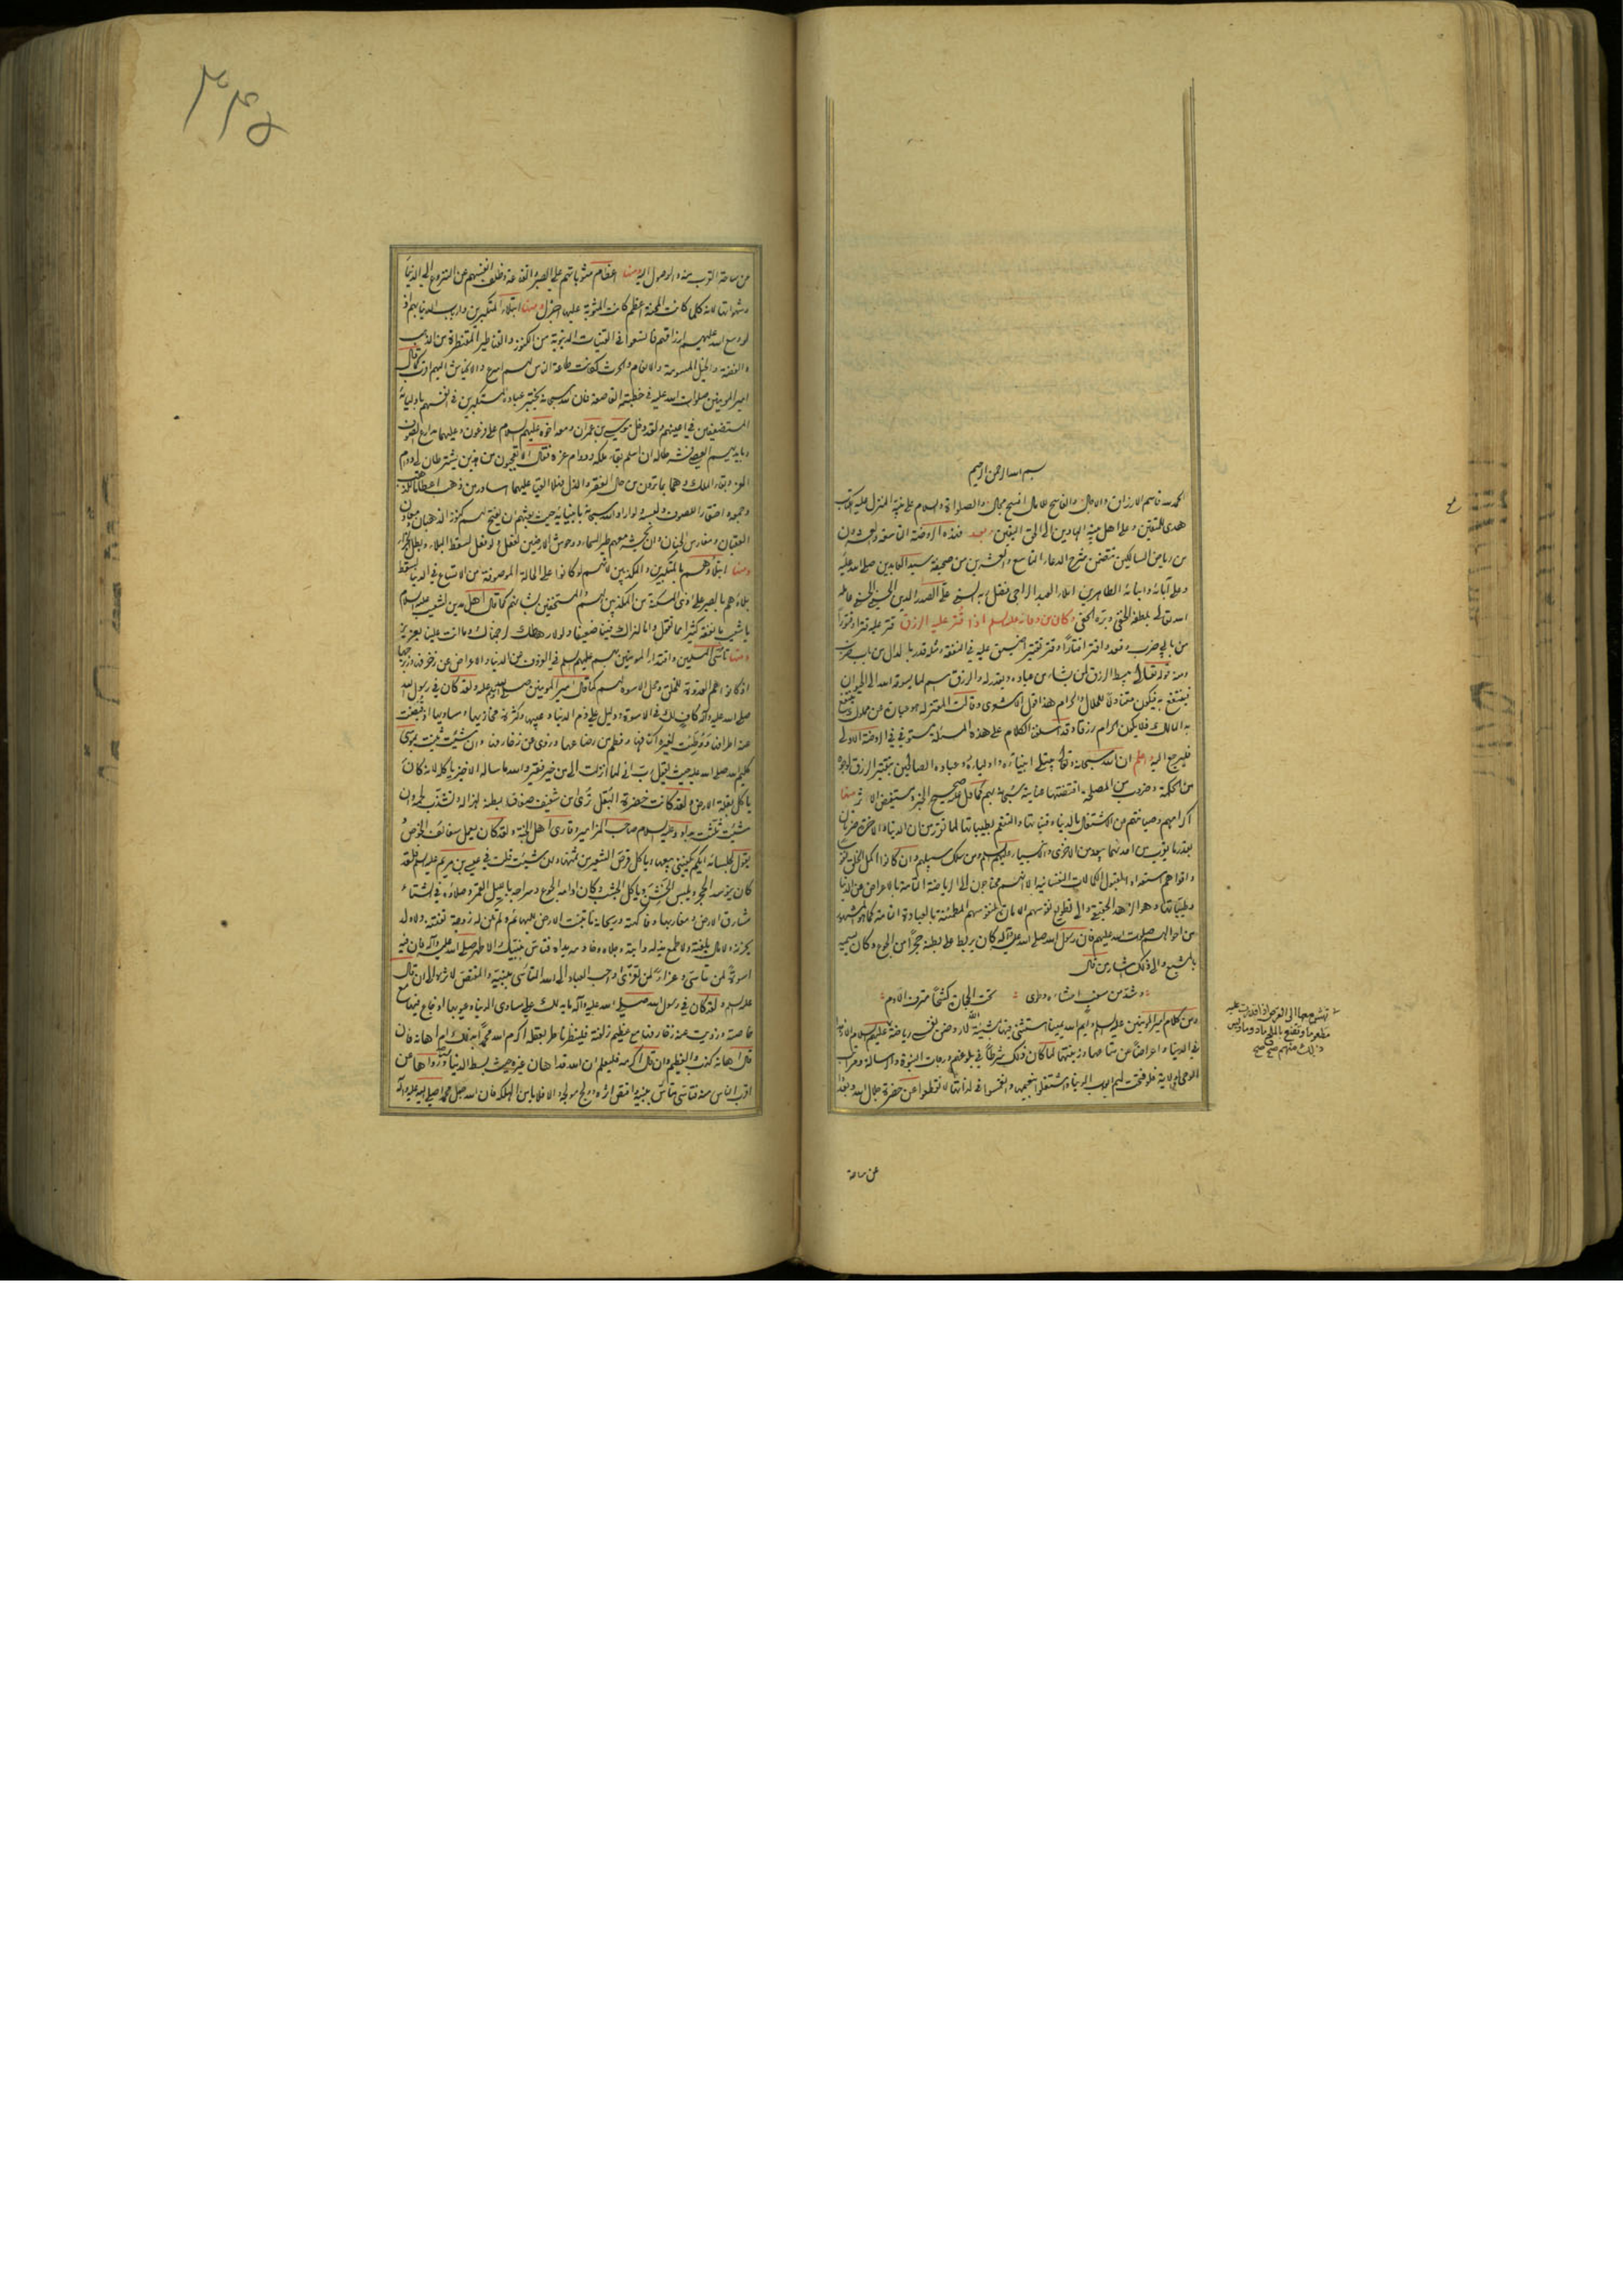 بسم الله الرحمن الرحيم
الحمد لله قاسم الارزاق والآجال والفاسح للآمال افسح مجال والصلوة والسلام على نبيه المنزل عليه كتاب
هدى للمتقين وعلى اهل بيته الهادين الى الحق اليقين وبعد فهذه الروضة التاسعة والعشرون
من رياض السالكين تتضمن شرح الدعاء التاسع والعشرين من صحيفة سيد العابدين صلى الله عليه
وعلى آبائه وابنائه الطاهرين املاء العبد الراجى فضل ربه السنى على الصدر الدين الحسينى الحسنى عامله
الله تعالى بلطفه الخفى وبره الحفى وكان من دعائه عليه السلم اذا قتر عليه الرزق قتر عليه قترا وقتورا
من بابى ضرب وقعد واقتر اقتارا وقتر تقتيرا ضيق عليه فى النفقة ومثله قدر بالدال من باب ضرب
ومنه قوله تعالى يبسط الرزق لمن يشاء من عباده ويقدر له والرزق اسم لما يسوقه الله الى الحيوان
فينتفع به فيكون متناولا للحلال والحرام هذا قول الاشعرى وقالت المعتزلة هو عبارة عن مملوك ينتفع
به المالك فلا يكون الحرام رزقا وقد اسلفنا الكلام على هذه المسئلة مستوفى فى الروضة الاولى
فليرجع اليه اعلم ان الله سبحانه وتعالى يبتلى انبياءه واولياءه وعباده الصالحين بتقتير الرزق لوجوه
من الحكمة وضروب من المصلحة اقتضتها عنايته سبحانه بهم كما دل عليه صحيح الخبر ومستفيض الاثر منها
اكرامهم وصيانتهم من الاشتغال بالدنيا وقنياتها والتنعم بطيباتها لما تقرر من ان الدنيا والآخرة ضرتان
بقدر ما يقرب من احديهما يبعد من الاخرى والانبياء وان كانوا اكمل الخلق
واقواهم استعدادا لقبول الكمالات النفسانية الا انهم محتاجون الى الرياضة التامة بالاعراض عن الدنيا
وطيباتها وهو الزهد الحقيقى والى تطويع نفوسهم الامارة لنفوسهم المطمئنة بالعبادة التامة كما هو المشهور
من احوالهم صلوات الله عليهم فان رسول الله صلى الله عليه وآله كان يربط على بطنه حجرا من الجوع وكان يسميه
بالمشبع والى ذلك اشار من قال
وشد من سغب احشاءه وطوى تحت الحجارة كشحا مترف الادم
ومن كلام امير المؤمنين عليه السلم وايم الله يمينا استثنى فيها بمشيئة الله لاروضن نفسى رياضة
تهش معها الى القرص اذا قدرت عليه
مطعوما وتقنع بالملح مأدوما وليس
ذلك منهم صح صح
فى الدنيا واعراضا عن متاعها وزينتها لما كان ذلك شرطا فى بلوغهم درجات النبوة والرسالة ومراتب
الوحى والولاية فلو فتحت لهم ابواب الدنيا واشتغلوا بنعيمها وانغمسوا فى لذاتها لانقطعوا عن حضرة جلال الله وبعدوا
عن ساحة
٣٣٥
من ساحة القرب منه والوصول اليه ومنها اعظام مثوباتهم على الصبر والقناعة وظلف انفسهم عن النزوع الى الدنيا
وشهواتها لانه كلما كانت المحنة اعظم كانت المثوبة عليها اجزل ومنها ابتلاء المتكبرين وارباب الدنيا بهم اذ
لو وسع الله عليهم ارزاقهم فاتسعوا فى القنيات الدنيوية من الكنوز والقناطير المقنطرة من الذهب
والفضة والخيل المسومة والانعام والحرث لكانت طاعة الناس لهم اسرع والانحياش اليهم اقرب كما قال
امير المؤمنين صلوات الله عليه فى خطبته القاصعة فان الله سبحانه يختبر عباده المستكبرين فى انفسهم باوليائه
المستضعفين فى اعينهم ولقد دخل موسى بن عمران ومعه اخوه عليهم السلام على فرعون وعليهما مدارع الصوف
وبايديهم العصى فشرطا له ان اسلم بقاء ملكه ودوام عزه فقال الا تعجبون من هذين يشترطان لى دوام
العز وبقاء الملك وهما بما ترون من حال الفقر والذل فهلا القى عليهما اساور من ذهب اعظاما للذهب
وجمعه واحتقارا للصوف ولبسه ولو اراد الله سبحانه بانبيائه حيث بعثهم ان يفتح لهم كنوز الذهبان ومعادن
العقيان ومغارس الجنان وان يحشر معهم طير السماء ووحوش الارضين لفعل ولو فعل لسقط البلاء وبطل الجزاء
ومنها ابتلاؤهم بالمتكبرين والمكذبين لانهم لو كانوا على الحالة الموصوفة من الاتساع فى الدنيا لسقط
بلاؤهم بالصبر على اذى المسكنة من المكذبين لهم المستخفين بشانهم كما قال اهل مدين لشعيب عليه السلام
يا شعيب ما نفقه كثيرا مما تقول وانا لنراك فينا ضعيفا ولولا رهطك لرجمناك وما انت علينا بعزيز
ومنها تاسى المسلمين واقتداء المؤمنين بهم عليهم السلم فى العزوف عن الدنيا والاعراض عن زخرفها وزبرجها
اذ كانوا هم القدوة للخلق ومحل الاسوة لهم كما قال امير المؤمنين ولقد كان فى رسول الله
صلى الله عليه وآله كاف لك فى الاسوة ودليل على ذم الدنيا وعيبها وكثرة مخازيها ومساويها اذ قبضت
عنه اطرافها ووطئت لغيره اكنافها وفطم من رضاعها وزوى عن زخارفها وان شئت ثنيت بموسى
كليم الله صلى الله عليه حيث يقول رب انى لما انزلت الى من خير فقير والله ما ساله الا خبزا ياكله لانه كان
ياكل بقلة الارض ولقد كانت خضرة البقل ترى من شفيف صفاق بطنه لهزاله وتشذب لحمه وان
شئت ثلثت بداود عليه السلام صاحب المزامير وقارى اهل الجنة ولقد كان يعمل سفائف الخوص
بيده ويقول لجلسائه ايكم يكفينى بيعها وياكل قرص الشعير من ثمنها وان شئت قلت فى عيسى بن مريم عليه السلم فلقد
كان يتوسد الحجر ويلبس الخشن وياكل الجشب وكان ادامه الجوع وسراجه بالليل القمر وظلاله فى الشتاء
مشارق الارض ومغاربها وفاكهته وريحانه ما تنبت الارض للبهائم ولم تكن له زوجة تفتنه ولا ولد
يحزنه ولا مال يلفته ولا طمع يذله دابته رجلاه وخادمه يداه فتاس بنبيك الاطهر صلى الله عليه وآله فان فيه
اسوة لمن تاسى وعزاء لمن تعزى واحب العباد الى الله المتاسى بنبيه والمقتص لاثره الى ان قال
عليه السلم ولقد كان فى رسول الله صلى الله عليه وآله ما يدلك على مساوى الدنيا وعيوبها اذ جاع فيها مع
خاصته وزويت عنه زخارفها مع عظيم زلفته فلينظر ناظر بعقله اكرم الله محمدا بذلك ام اهانه فان
قال اهانه كذب والعظيم وان قال اكرمه فليعلم ان الله قد اهان غيره حيث بسط الدنيا له وزواها عن
اقرب الناس منه فتاسى متاس بنبيه واقتص اثره وولج مولجه والا فلا يامن الهلكة فان الله جعل محمدا صلى الله عليه وآله